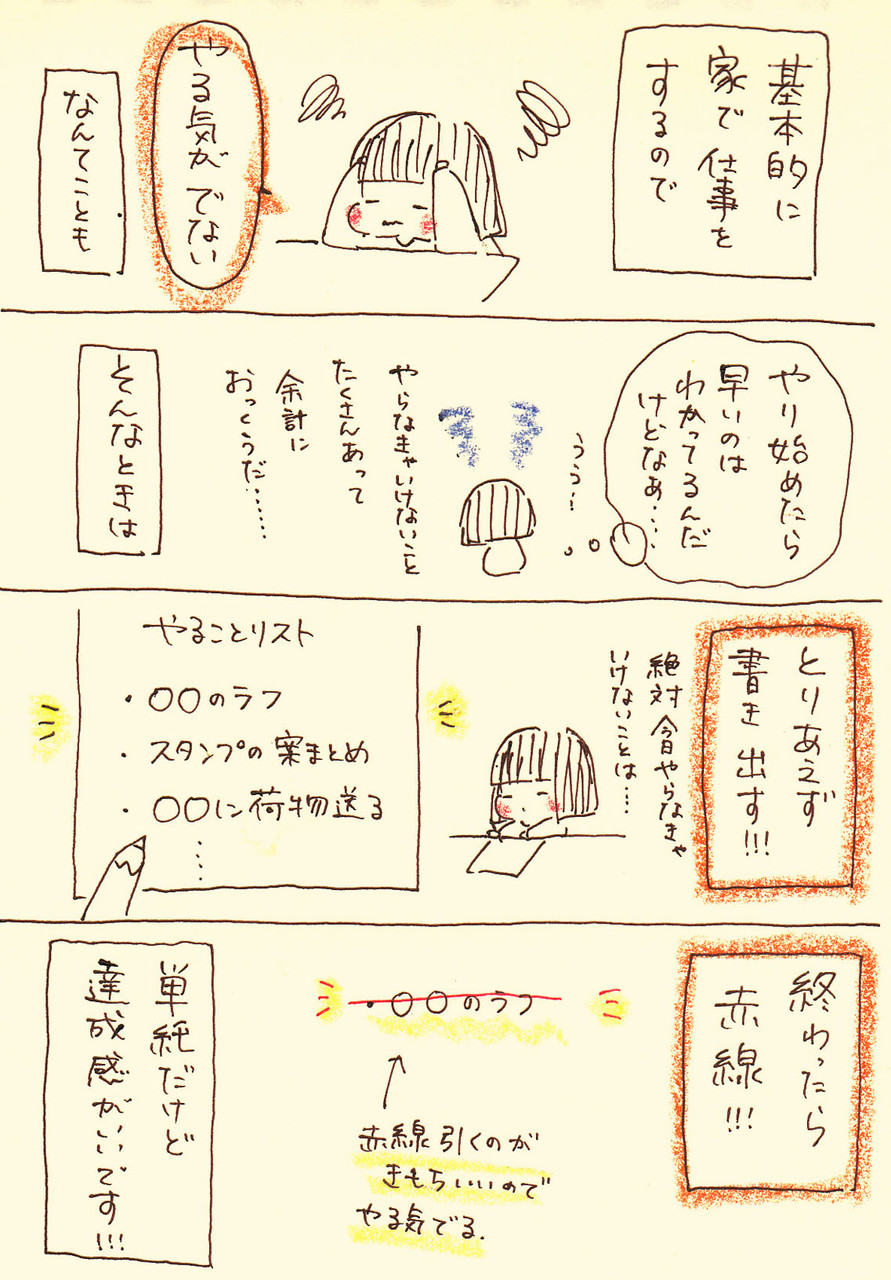 基本的に
家で仕事を
するので
やる気がでない
なんてことも
やり始めたら
早いのは
わかってるんだ
けどなぁ‥‥
うぅ!
やらなきゃいけないこと
たくさんあって
余計に
おっくうだ‥‥‥
そんなときは
とりあえず
書き出す!!!
絶対今日やらなきゃ
いけないことは…
やることリスト
・〇〇のラフ
・スタンプの案まとめ
・〇〇に荷物送る
⋮
終わったら
赤線!!!
・〇〇のラフ
赤線引くのが
きもちいいので
やる気でる.
単純だけど
達成感がいいです!!!